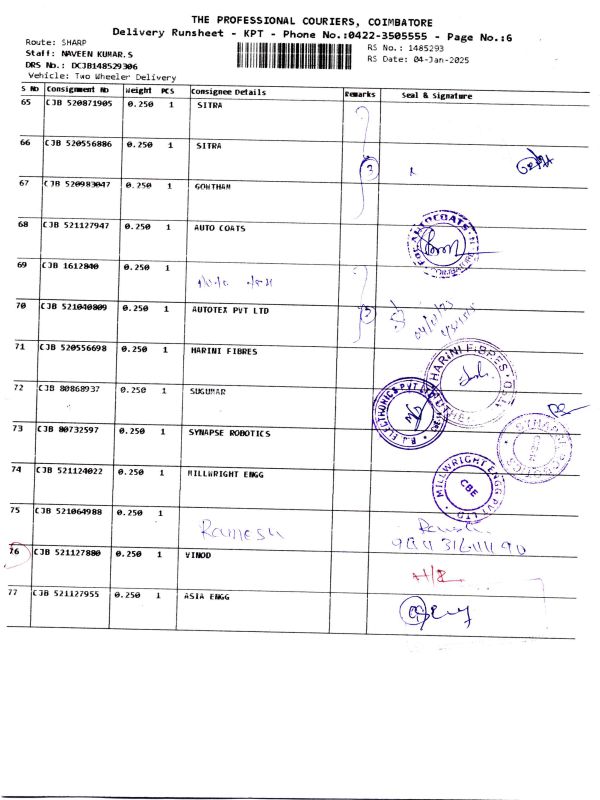 THE PROFESSIONAL COURIERS, COIMBATORE
Delivery Runsheet - KPT - Phone No.:0422-3505555 - Page No.:6
Route: SHARP
RS No.: 1485293
Staff: NAVEEN KUMAR.S
RS Date: 04-Jan-2025
DRS No.: DCJB148529306
Vehicle: Two Wheeler Delivery
S No Consignment No Weight PCS Consignee Details Remarks Seal & Signature
65 CJB 520871905 0.250 1 SITRA
66 CJB 520556886 0.250 1 SITRA
3
67 CJB 520983047 0.250 1 GOWTHAM
68 CJB 521127947 0.250 1 AUTO COATS
FOR AUTOCOATS
69 CJB 1612840 0.250 1
70 CJB 521040809 0.250 1 AUTOTEX PVT LTD
71 CJB 520556698 0.250 1 HARINI FIBRES
HARINI FIBRES
72 CJB 80868937 0.250 1 SUGUMAR
R.J. ELECTRONICS PVT LTD
73 CJB 80732597 0.250 1 SYNAPSE ROBOTICS
74 CJB 521124022 0.250 1 MILLWRIGHT ENGG
MILLWRIGHT ENGG PVT LTD
CBE
75 CJB 521064988 0.250 1
Ramesh
76 CJB 521127880 0.250 1 VINOD
77 CJB 521127955 0.250 1 ASIA ENGG